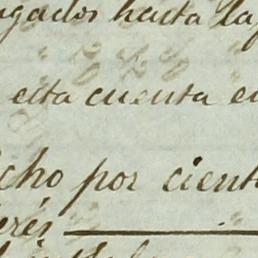 gados hasta la
esta cuenta en
cho por cient
erés